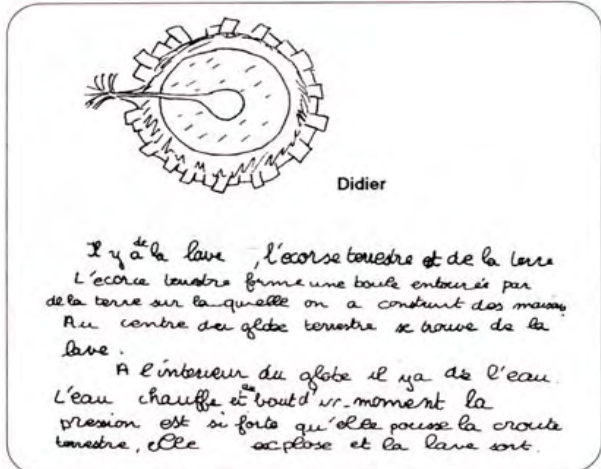 Didier
Il y a de la lave, l'ecorse terrestre et de la terre
L'ecorce terrestre forme une boule entourée par
de la terre sur la quelle on a construit des maisons
Au centre du globe terrestre se trouve de la
lave.
A l'interieur du globe il ya de l'eau.
L'eau chauffe et au bout d'un moment la
pression est si forte qu'elle pousse la croute
terrestre, elle explose et la lave sort.